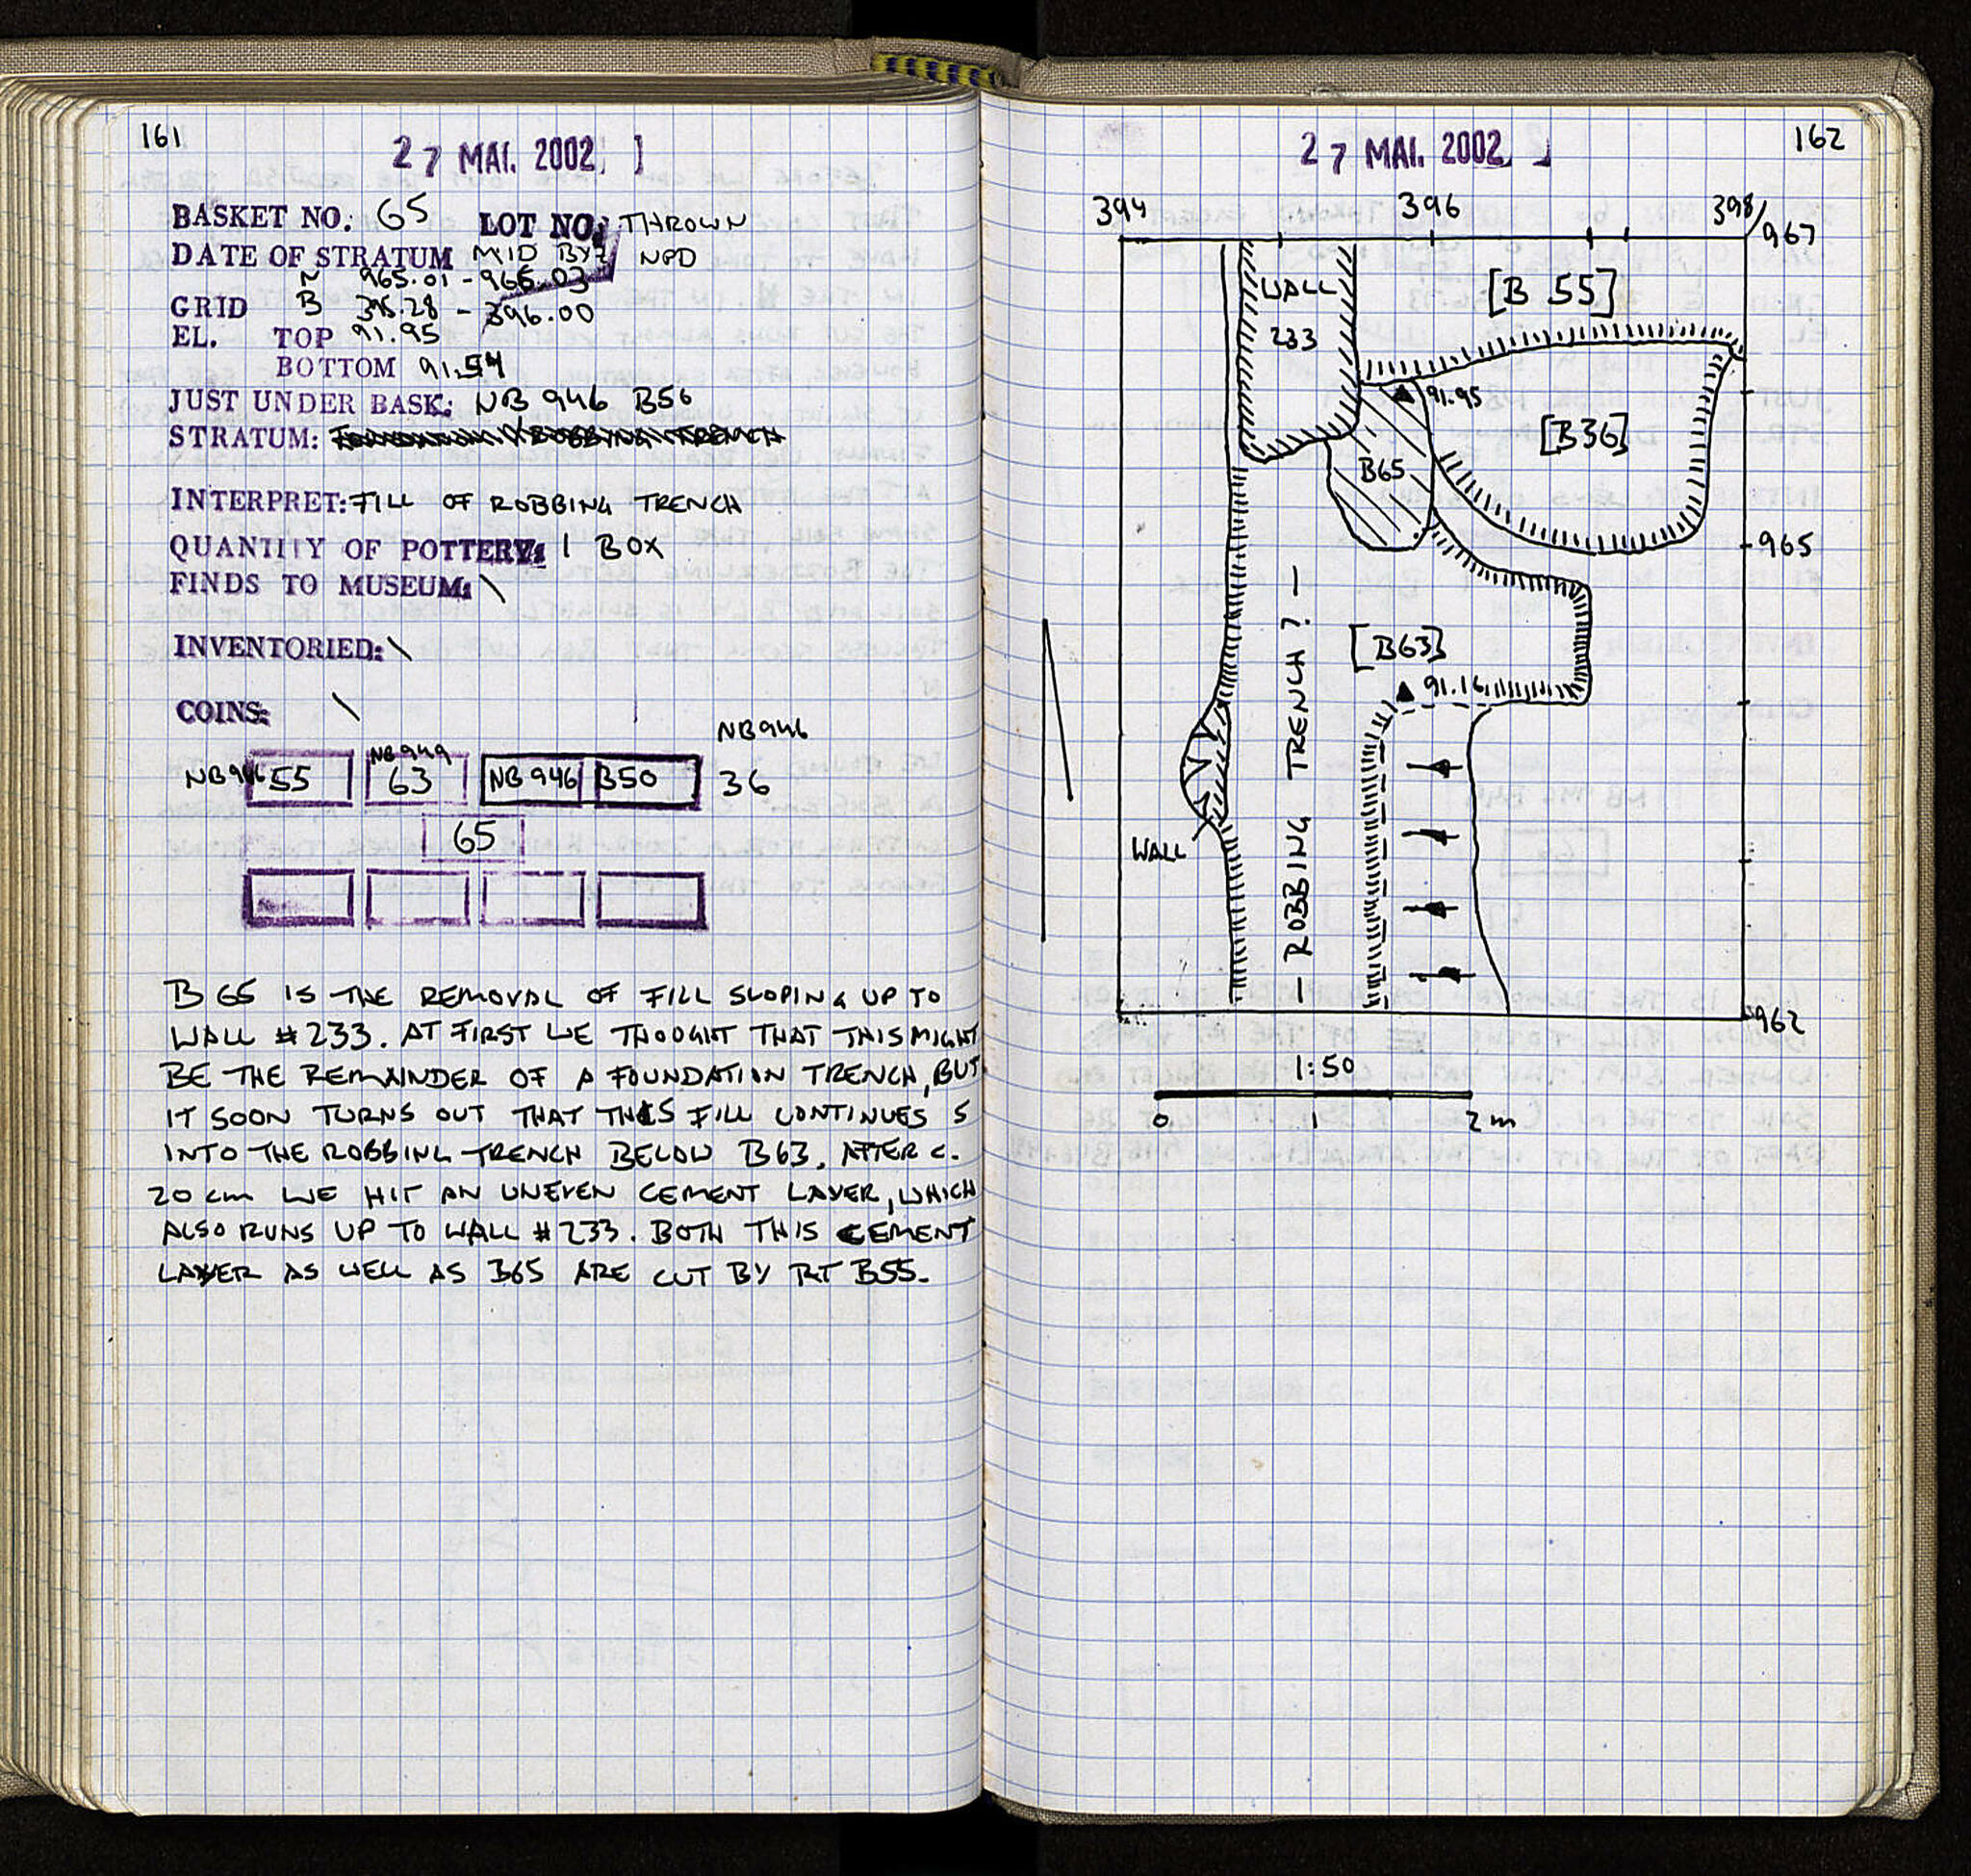 161
27 MAI. 2002
BASKET NO: 65 LOT NO: THROWN
DATE OF STRATUM MID BYZ NPD
N 965.01 - 966.03
GRID B 395.28 - 396.00
EL. TOP 91.95
BOTTOM 91.54
JUST UNDER BASK: NB 946 B56
STRATUM:
INTERPRET: FILL OF ROBBING TRENCH
QUANTITY OF POTTERY: 1 BOX
FINDS TO MUSEUM: \
INVENTORIED: \
COINS: \
NB946 55 NB949 63 NB 946 B50 NB946 36
65
B 65 IS THE REMOVAL OF FILL SLOPING UP TO
WALL #233. AT FIRST WE THOUGHT THAT THIS MIGHT
BE THE REMAINDER OF A FOUNDATION TRENCH, BUT
IT SOON TURNS OUT THAT THIS FILL CONTINUES S
INTO THE ROBBING TRENCH BELOW B63. AFTER C.
20 cm WE HIT AN UNEVEN CEMENT LAYER, WHICH
ALSO RUNS UP TO WALL #233. BOTH THIS CEMENT
LAYER AS WELL AS B65 ARE CUT BY RT B55.
27 MAI. 2002
162
394 396 398/967
WALL
233
[B 55]
91.95
[B36]
B65
965
[B63]
91.16
- ROBBING TRENCH ? -
WALL
962
1:50
0 1 2 m